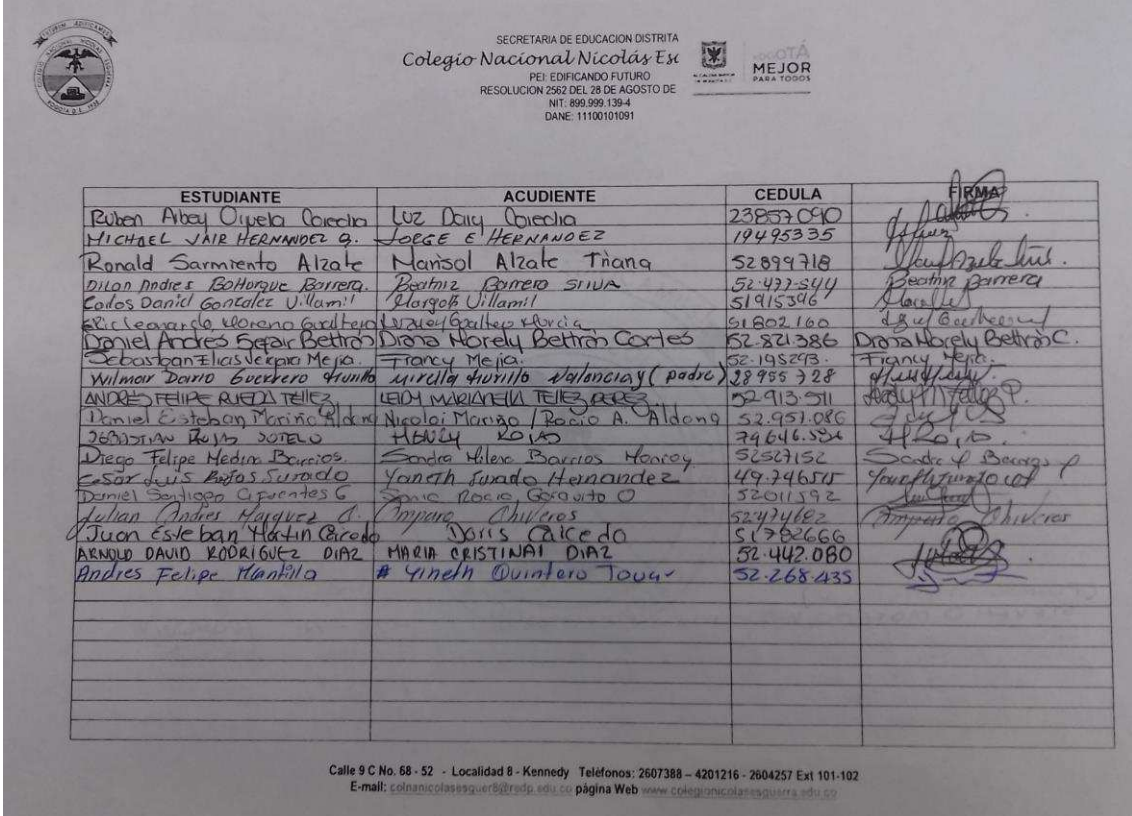 SECRETARIA DE EDUCACION DISTRITA
Colegio Nacional Nicolás Es
PEI: EDIFICANDO FUTURO
RESOLUCION 2562 DEL 28 DE AGOSTO DE
NIT: 899.999.139-4
DANE: 11100101091
MEJOR
PARA TODOS
ESTUDIANTE ACUDIENTE CEDULA FIRMA
Ruben Abey Luz Dary 23857090
MICHAEL JAIR HERNANDEZ G. JORGE E HERNANDEZ 19495335
Ronald Sarmiento Alzate Marisol Alzate Triana 52899718
Dilan Andres Bohorque Barrera. Beatriz Barrero SIlVA 52.477-544 Beatriz Barrera
Carlos Daniel Gonzalez Villamil Margoth Villamil 51915396
Eric Leonardo Moreno Gualtero 51802160
Daniel Andres Segair Beltrán Diana Marely Beltrán Cortes 52.821.386 Diana Marely Beltrán C.
Sebastian Elias Mejia. Francy Mejia. 52.195293. Francy Mejia.
Wilmar Dario Guerrero Murillo Mirella Murillo Valencia y (padre) 28955728
ANDRES FELIPE RUEDA TELLEZ LEIDY MARIANELLA TELLEZ PEREZ 52913.511
Daniel Esteban Mariño Aldana Nicolai Mariño / Rocio A. Aldana 52.951.086
SEBASTIAN ROJAS SOTELO HENRY ROJAS 79646.584 H Rojas.
Diego Felipe Medina Barrios. Sandra Milena Barrios Monroy 52527152
Cesar Luis Rojas Jurado Yaneth Jurado Hernandez 49.746515
Daniel Santiago Cifuentes G Sonia Rocio 52011592
Julian Andres Marquez C. Amparo Chiveros 52474682 Amparo Chiveros
Juan Esteban Martin Caicedo Doris Caicedo 51782666
ARNOLD DAVID RODRIGUEZ DIAZ MARIA CRISTINA DIAZ 52.442.080
Andres Felipe Mantilla Yineth Quintero Tovar 52.268.435
Calle 9 C No. 68 - 52 - Localidad 8 - Kennedy Teléfonos: 2607388 – 4201216 - 2604257 Ext 101-102
E-mail: colnanicolasesguer8@redp.edu.co página Web www.colegionicolasesguerra.edu.co